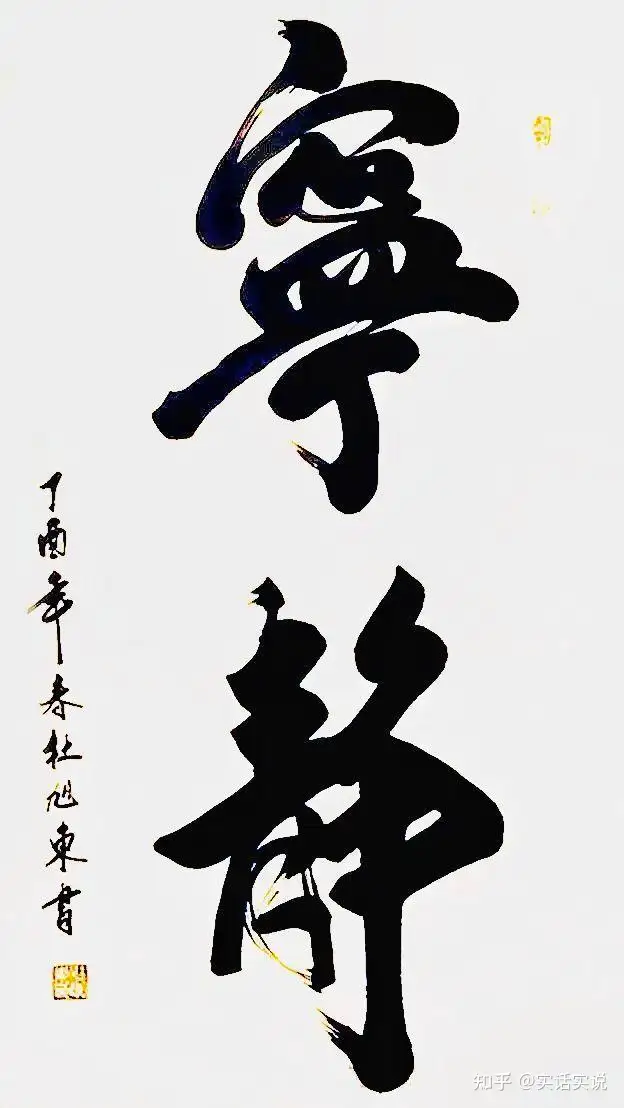 寧靜
丁酉年春杜旭東書
知乎 @实话实说